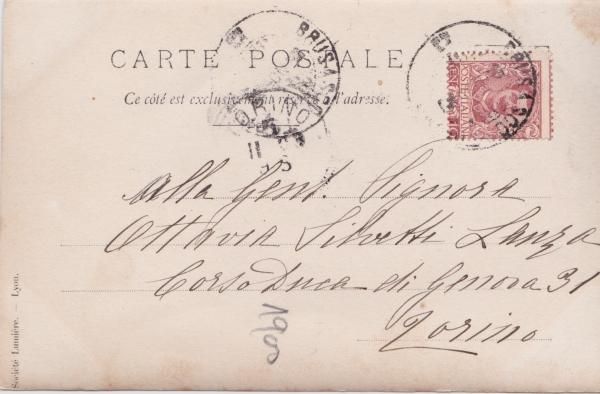 CARTE POSTALE
Ce côté est exclusivement réservé à l'adresse.
BRUSA
TORINO
11
Alla Gent. Signora
Ottavia Silvetti Lanza
Corso Duca di Genova 31
Torino
1900
Société Lumière. — Lyon.